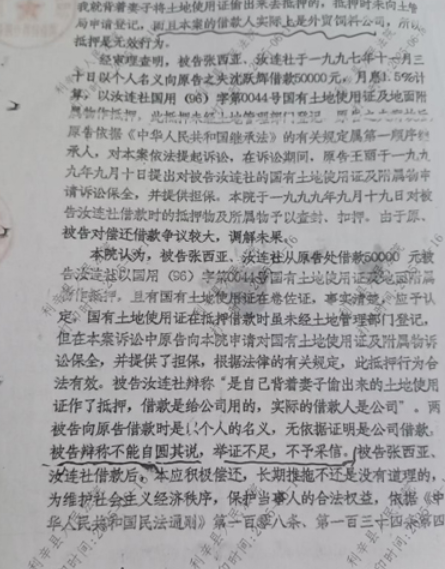 我就背着妻子将土地使用证偷出来去抵押的，抵押时未向土地
局申请登记，而且本案的借款人实际上是外贸饲料公司，所以
抵押是无效行为。
经审理查明，被告张西亚、汝连社于一九九七年十一月三
十日以个人名义向原告之夫沈跃辉借款50000元，月息1.5%计
算，以汝连社国用（96）字第0044号国有土地使用证及地面附
属物作抵押，此抵押未经土地管理部门登记
原告依据《中华人民共和国继承法》的有关规定属第一顺序继
承人，对本案依法提起诉讼，在诉讼期间，原告王丽于一九九
九年九月十日提出对被告汝连社的国有土地使用证及附属物申
请诉讼保全，并提供担保。本院于一九九九年九月十九日对被
告汝连社借款时的抵押物及所属物予以查封、扣押。由于原、
被告对偿还借款争议较大，调解未果。
本院认为，被告张西亚、汝连社从原告处借款50000元被
告汝连社以国用（96）字第0044号国有土地使用证及地面附属
物作抵押，且有国有土地使用证在卷佐证，事实清楚，应予认
定。国有土地使用证在抵押借款时虽未经土地管理部门登记，
但在本案诉讼中原告向本院申请对国有土地使用证及附属物诉
讼保全，并提供了担保，根据法律的有关规定，此抵押行为合
法有效。被告汝连社辩称“是自己背着妻子偷出来的土地使用
证作了抵押，借款是给公司用的，实际的借款人是公司”。两
被告向原告借款时是以个人的名义，无依据证明是公司借款，
被告辩称不能自圆其说，举证不足，不予采信。被告张西亚、
汝连社借款后，本应积极偿还，长期推拖不还是没有道理的，
为维护社会主义经济秩序，保护当事人的合法权益，依据《中
华人民共和国民法通则》第一百零八条、第一百三十四条第四